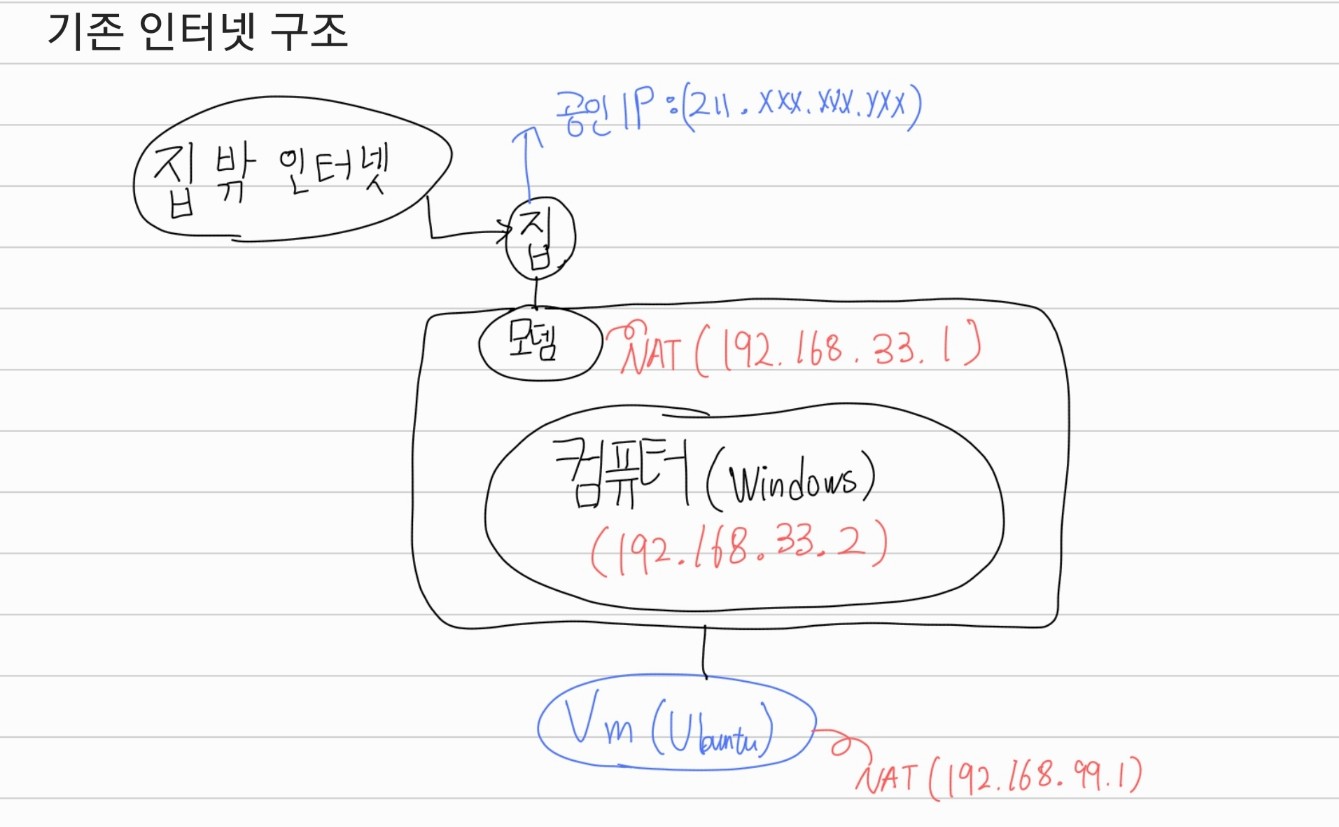 기존 인터넷 구조
공인IP:(211.xxx.xxx.yxx)
집 밖 인터넷
집
모뎀
NAT (192.168.33.1)
컴퓨터(Windows)
(192.168.33.2)
Vm (Ubuntu)
NAT (192.168.99.1)